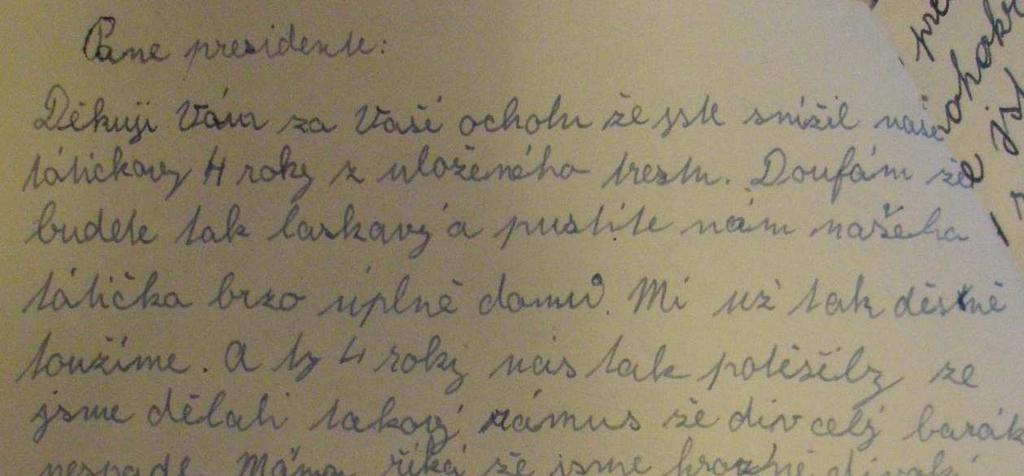 Pane presidente:
Děkuji Vám za Vaší ochotu že jste snížil naše
tátičkovy 4 roky z uloženého trestu. Doufám že
budete tak laskavý a pustíte nám našeho
tátička brzo úplně domů. Mi už tak děsně
toužíme. A ty 4 roky nás tak potěšily ze
jsme dělali takový rámus že div celý barák
nespadl. Máma říká že jsme hrozně